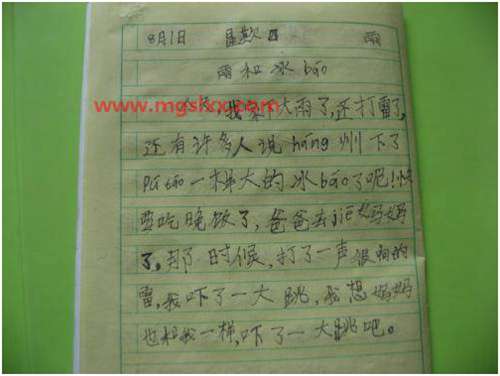 8月1日 星期日 雨
雨和冰báo
今天,我家下大雨了,还打雷了,
www.mgskx.com
还有许多人说háng州下了
Pú táo一样大的冰báo了呢!快
要吃晚饭了,爸爸去jiē妈妈
了,那时候,打了一声很响的
雷,我吓了一大跳,我想妈妈
也和我一样,吓了一大跳吧。